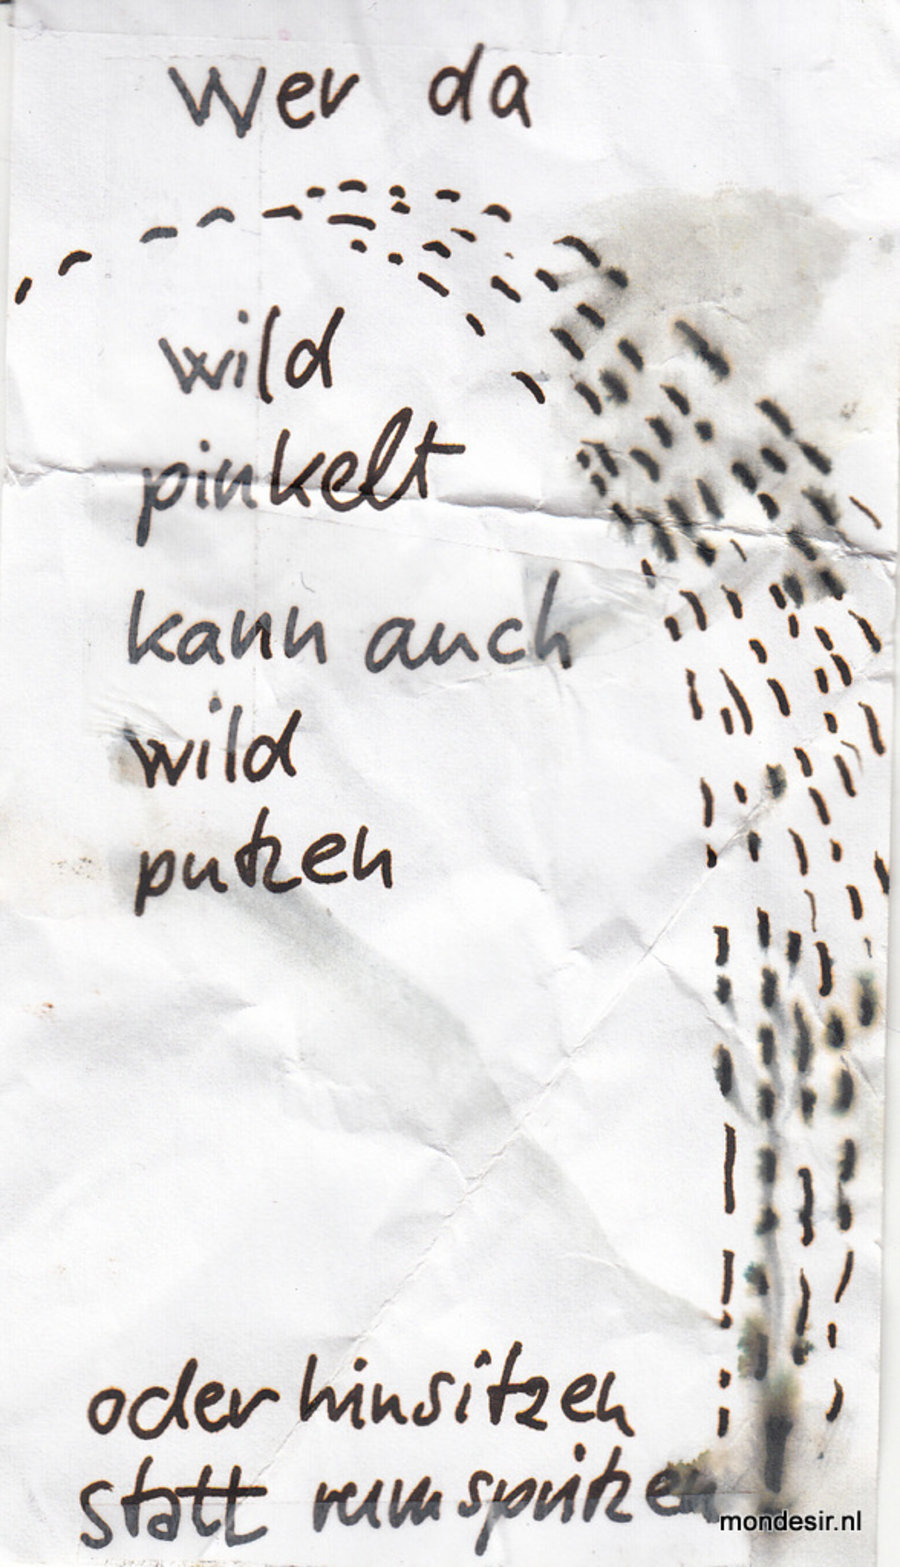 Wer da
wild
pinkelt
kann auch
wild
putzen
oder hinsitzen
statt rumspritzen
mondesir.nl